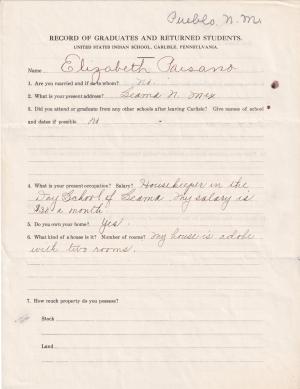 Pueblo, N. M.
RECORD OF GRADUATES AND RETURNED STUDENTS.
UNITED STATES INDIAN SCHOOL, CARLISLE, PENNSYLVANIA.
Name Elizabeth Paisano
1. Are you married and if so to whom? No.
2. What is your present address? Seama N. Mex
3. Did you attend or graduate from any other schools after leaving Carlisle? Give names of school
and dates if possible No
4. What is your present occupation? Salary? Housekeeper in the
Day School of Seama my salary is
$30 a month
5. Do you own your home? Yes.
6. What kind of a house is it? Number of rooms? my house is adobe
with two rooms.
7. How much property do you possess?
Stock
Land